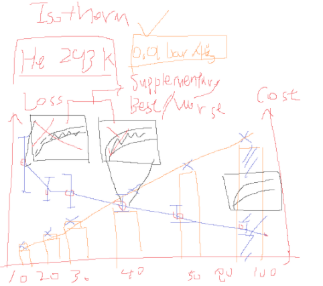 Isotherm
He 293 K
0.01 bar
Supplementary
Loss
Best/Worse
Cost
10 20 30 40 50 80 100